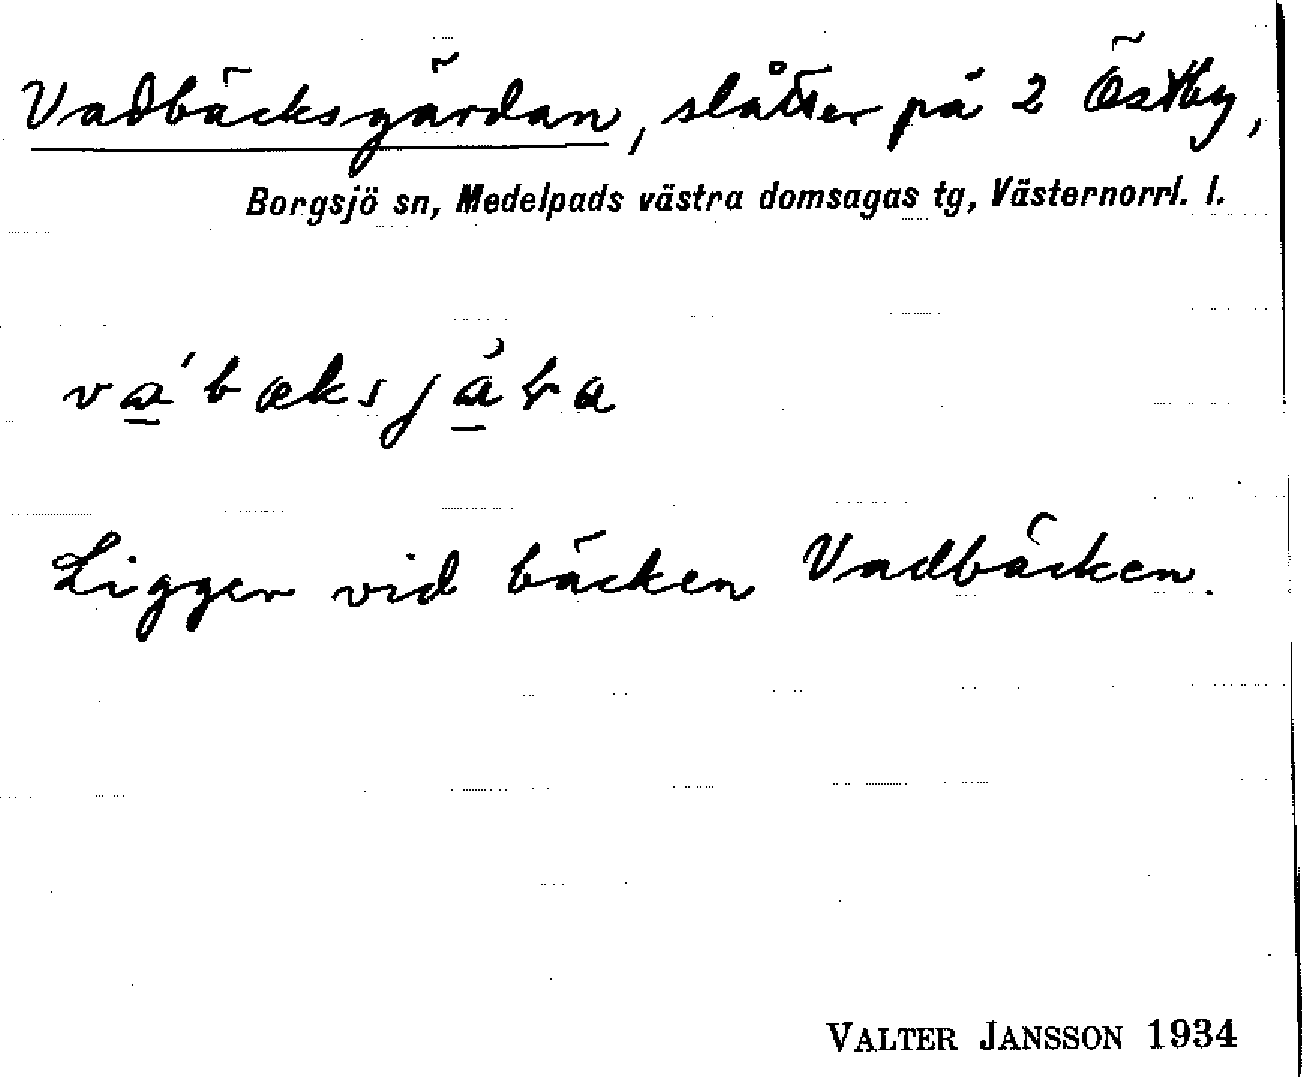 Vadbäcksgärdan, slåtter på 2 Östby,
Borgsjö sn, Medelpads västra domsagas tg, Västernorrl. l.
Ligger vid bäcken Vadbäcken.
VALTER JANSSON 1934